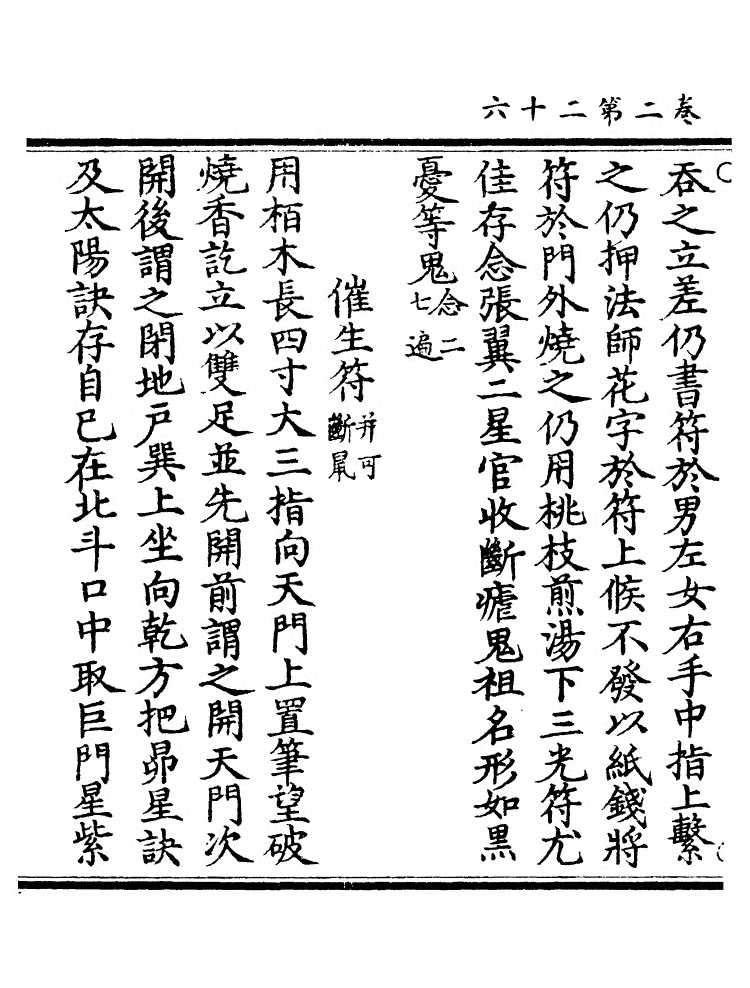 卷二第二十六
吞之立差仍書符於男左女右手中指上繫
之仍押法師花字於符上候不發以紙錢將
符於門外燒之仍用桃枝煎湯下三光符尤
佳存念張翼二星官收斷瘧鬼祖名形如黑
憂等鬼念二七遍
催生符并可斷屍
用栢木長四寸大三指向天門上置筆望破
燒香訖立以雙足並先開前謂之開天門次
開後謂之閉地戸巽上坐向乾方把昴星訣
及太陽訣存自巳在北斗口中取巨門星紫